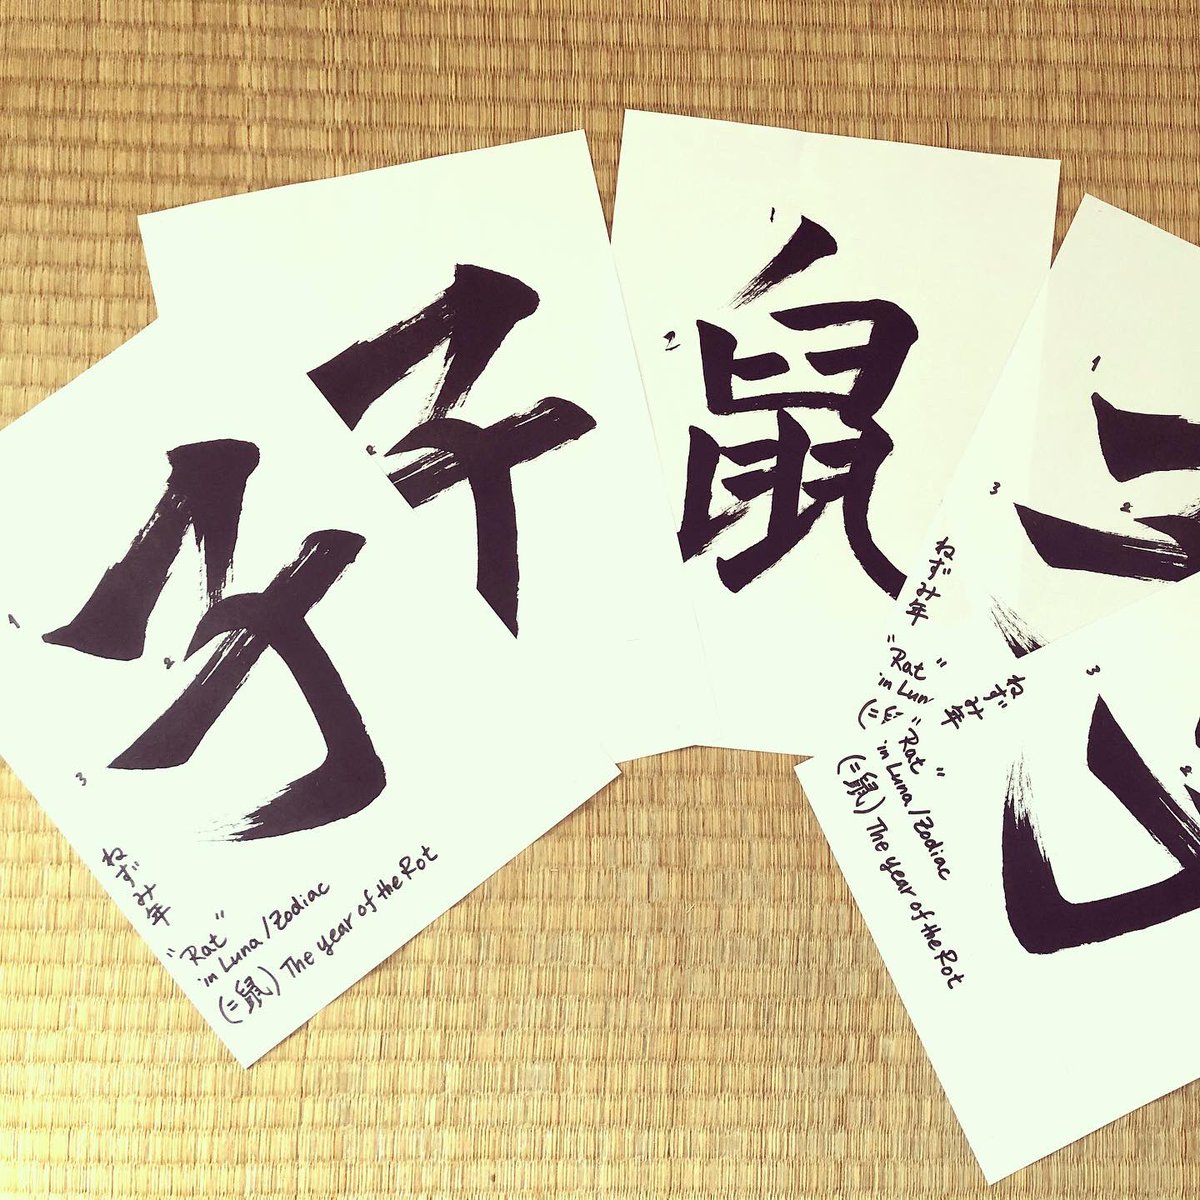 子
1
2
3
ねずみ年
"Rat"
in Luna/Zodiac
(=鼠) The year of the Rot
子
2
鼠
1
2
1
2
3
ねずみ年
"Rat"
in Lun
(=
3
2
ねずみ年
"Rat"
in Luna/Zodiac
(=鼠) The year of the Rot